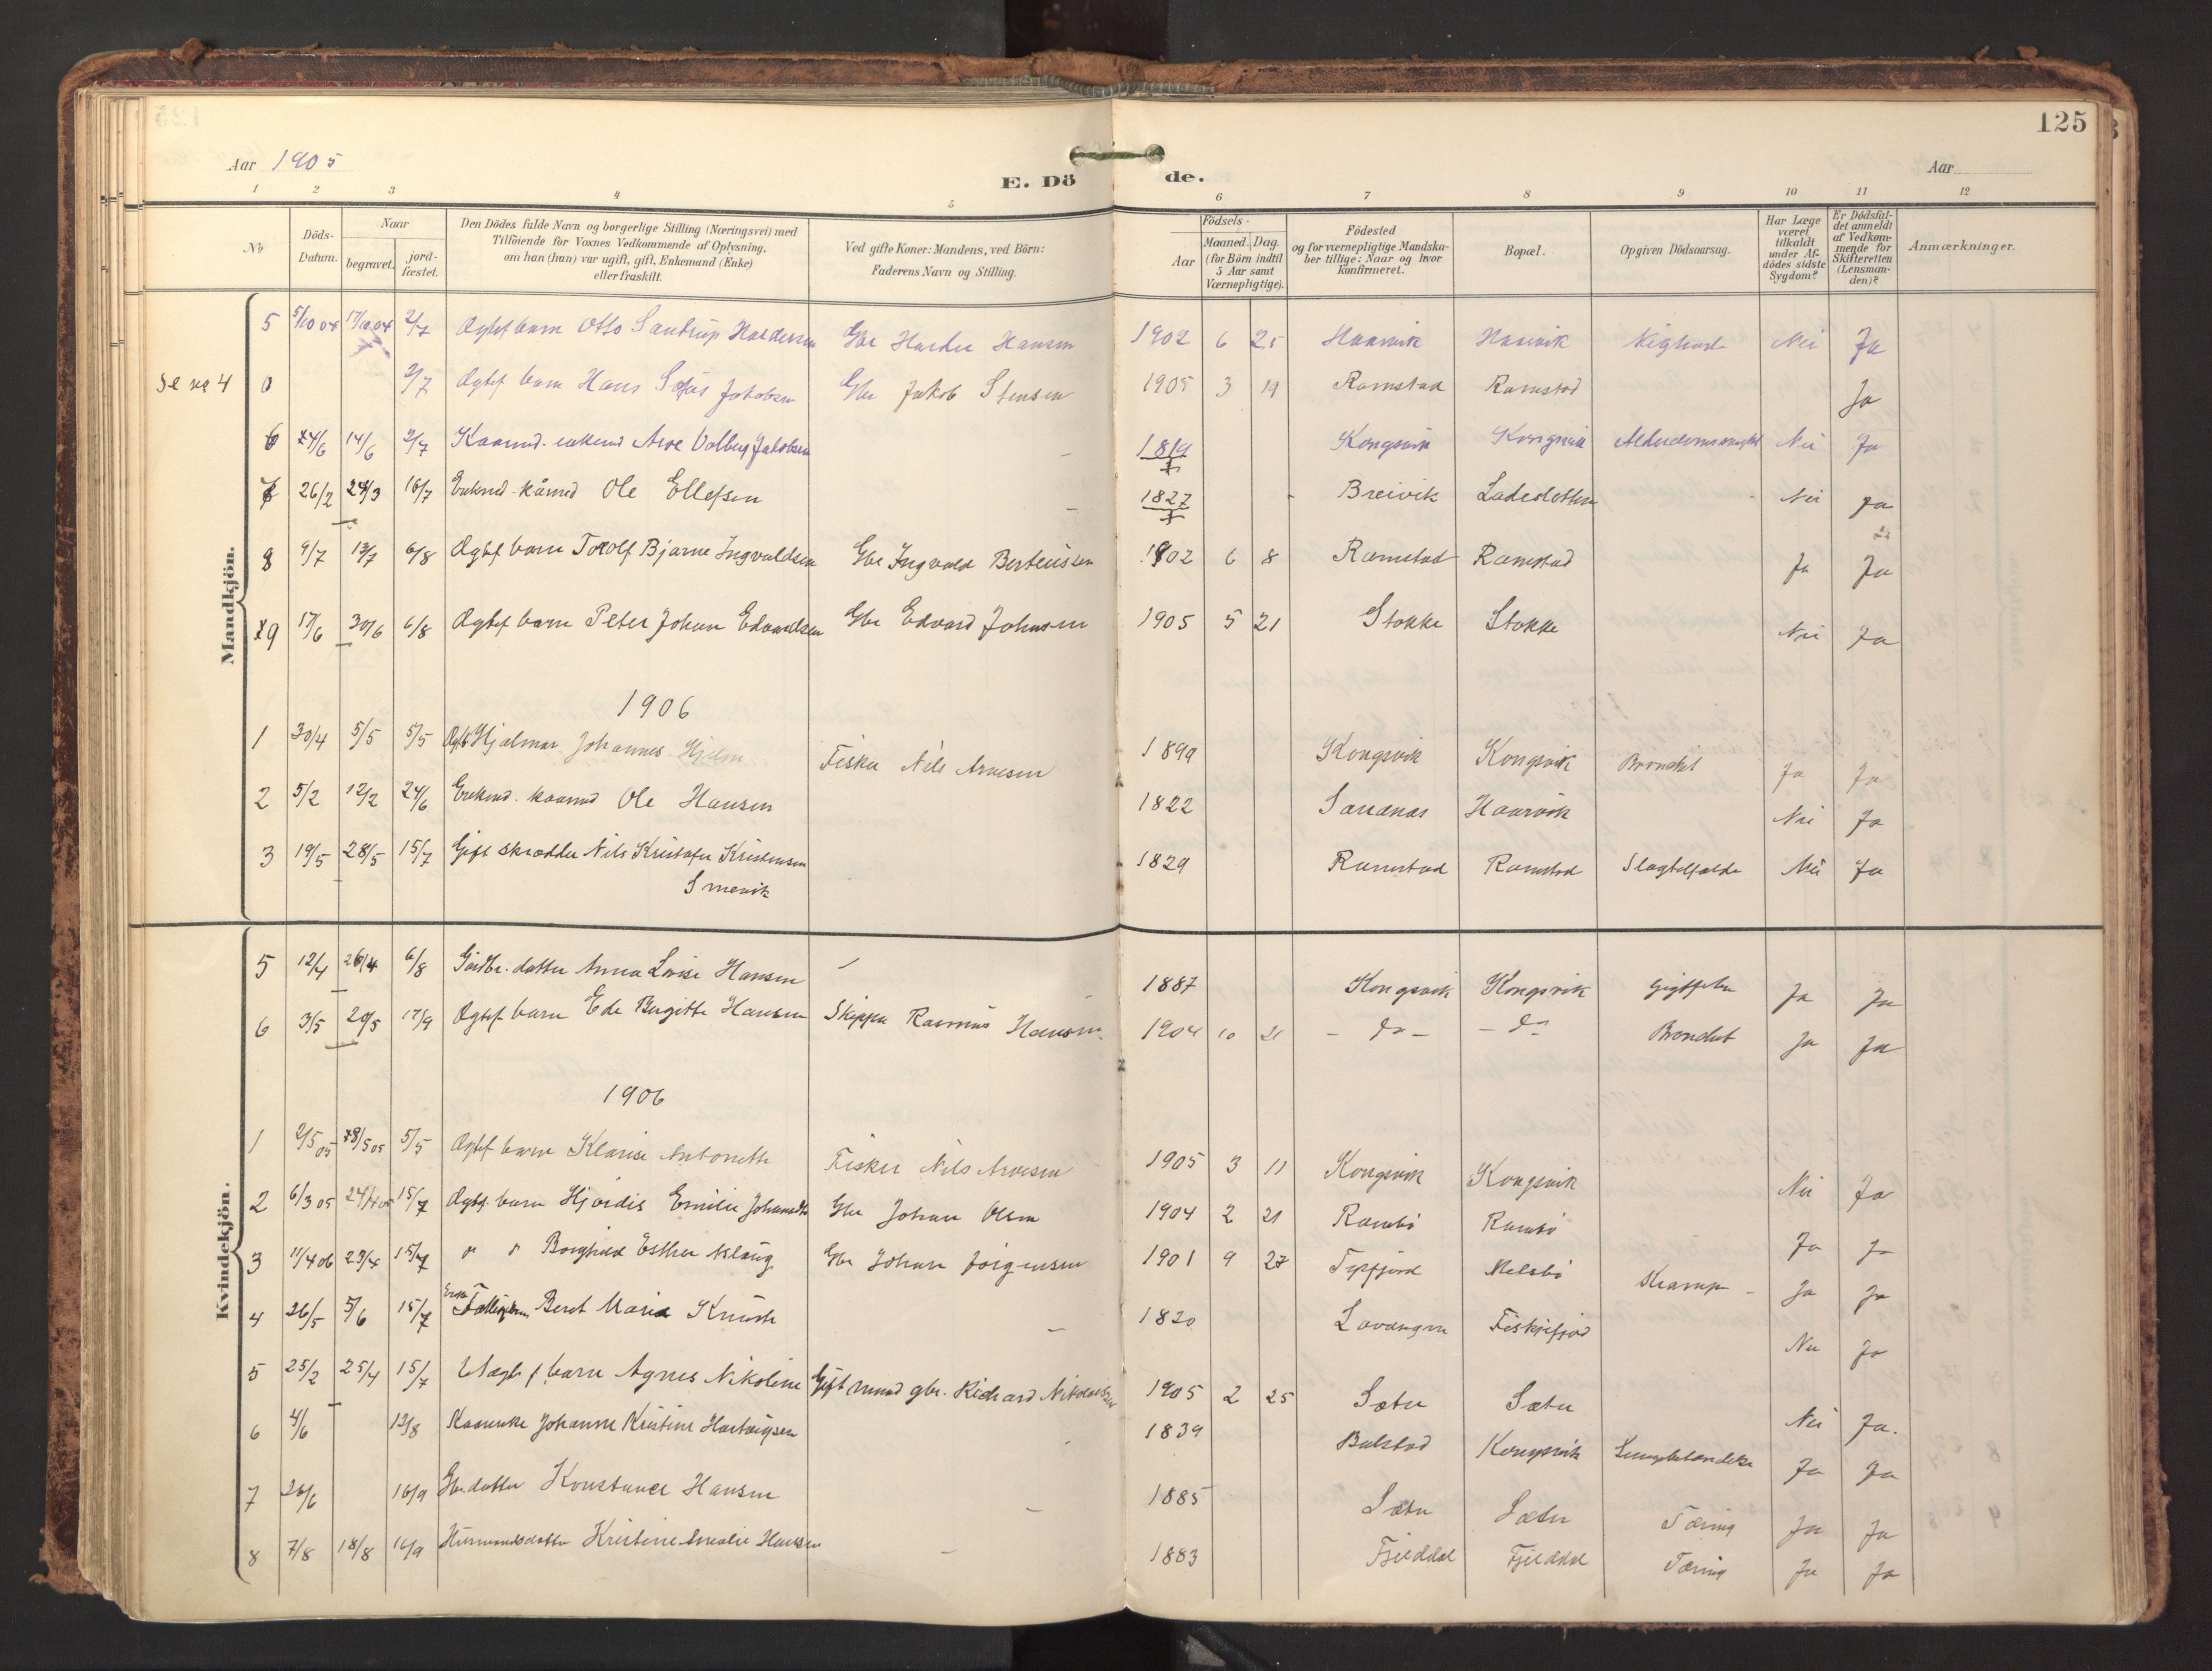 125
Aar 1905
E. Dö de.
Aar
1 2 3 4 5 6 7 8 9 10 11 12
No
Döds-Datum.
Naar
begravet. jord-fæstet.
Den Dödes fulde Navn og borgerlige Stilling (Næringsvei) med
Tilföiende for Voxnes Vedkommende af Oplysning,
om han (hun) var ugift, gift, Enkemand (Enke)
eller fraskilt.
Ved gifte Koner: Mandens, ved Börn:
Faderens Navn og Stilling.
Födsels-
Aar
Maaned. Dag.
(for Börn indtil
5 Aar samt
Værnepligtige).
Födested
og for værnepligtige Mandska-
ber tillige: Naar og hvor
Konfirmeret.
Bopæl.
Opgiven Dödsaarsag.
Har Læge
været
tilkaldt
under Af-
dödes sidste
Sygdom?
Er Dödsfal-
det anmeldt
af Vedkom-
mende for
Skifteretten
(Lensman-
den)?
Anmærkninger.
Mandkjön.
5 5/10 04 17/10 04 2/7 Ægtef barn Otto Hansen 1902 6 25 Haarvik Haarvik Nei Ja
Se no 4 0 2/7 Ægtef barn Hans Jakobsen Gbr Jakob Stensen 1905 3 19 Ramstad Ramstad Ja
6 14/6 2/7 Kaarmd. enkemd Arve Volberg Jakobsen 1819 Kongsvik Kongsvik Nei Ja
7 26/2 24/3 16/7 Enkmd. kårmd Ole Ellefsen 1827 Breivik Nei Ja
8 9/7 13/7 6/8 Ægtef barn Torolf Bjarne Ingvaldsen Gbr Ingvald Berteussen 1902 6 8 Ramstad Ramstad Ja Ja
9 17/6 30/6 6/8 Ægtef barn Peter Johan Edvardsen Gbr Edvard Johnsen 1905 5 21 Stokke Stokke Nei Ja
1906
1 30/4 5/5 5/5 Ægtf Hjalmar Johannes Hjelm Fisker Nils Arvesen 1899 Kongsvik Kongsvik Bronchit Ja Ja
2 5/2 12/2 24/6 Enkmd. kaarmd Ole Hansen 1822 Haarvik Nei Ja
3 19/5 28/5 15/7 Gift skrædder Nils Kristofer Kristensen 1829 Ramstad Ramstad Nei Ja
Smevik
Kvindekjön.
5 12/4 26/4 6/8 Gårdbr. datter Anna Lovise Hansen 1887 Kongsvik Kongsvik Gigtfeber Ja Ja
6 3/5 20/5 17/9 Ægtef barn Birgitte Hansen Skipper Rasmus Hansen 1904 10 21 - do - - do Bronchit Ja Ja
1906
1 2/5 05 5/5 Ægtef barn Klarise Antonette Fisker Nils Arvesen 1905 3 11 Kongsvik Kongsvik Nei Ja
2 6/3 05 15/7 Ægtef. barn Hjørdis Emilie Gbr Johan Olsen 1904 2 21 Rambø Rambø Ja Ja
3 11/4 06 23/4 15/7 " " Borghild Esther Aslaug Gbr Johan Jørgensen 1901 9 27 Melsbø Krampe Ja Ja
4 26/5 5/6 15/7 Beret Maria 1820 Lavangen Fiskefjord Nei Ja
5 25/2 25/4 15/7 Uægtef barn Agnes Nikoline Gift mand gbr. Richard Nikolaisen 1905 2 25 Sæter Sæter Nei Ja.
6 4/6 12/8 Kaarenke Johanne Kristine Hartvigsen 1839 Balstad Kongsvik Ja Ja
7 26/6 16/9 Gbr.datter Konstance Hansen 1885 Sæter Sæter Tæring Ja Ja
8 7/8 18/8 16/9 Husmandsdatter Kristine Amalie Hansen 1883 Fjelddal Fjelddal Tæring Ja Ja